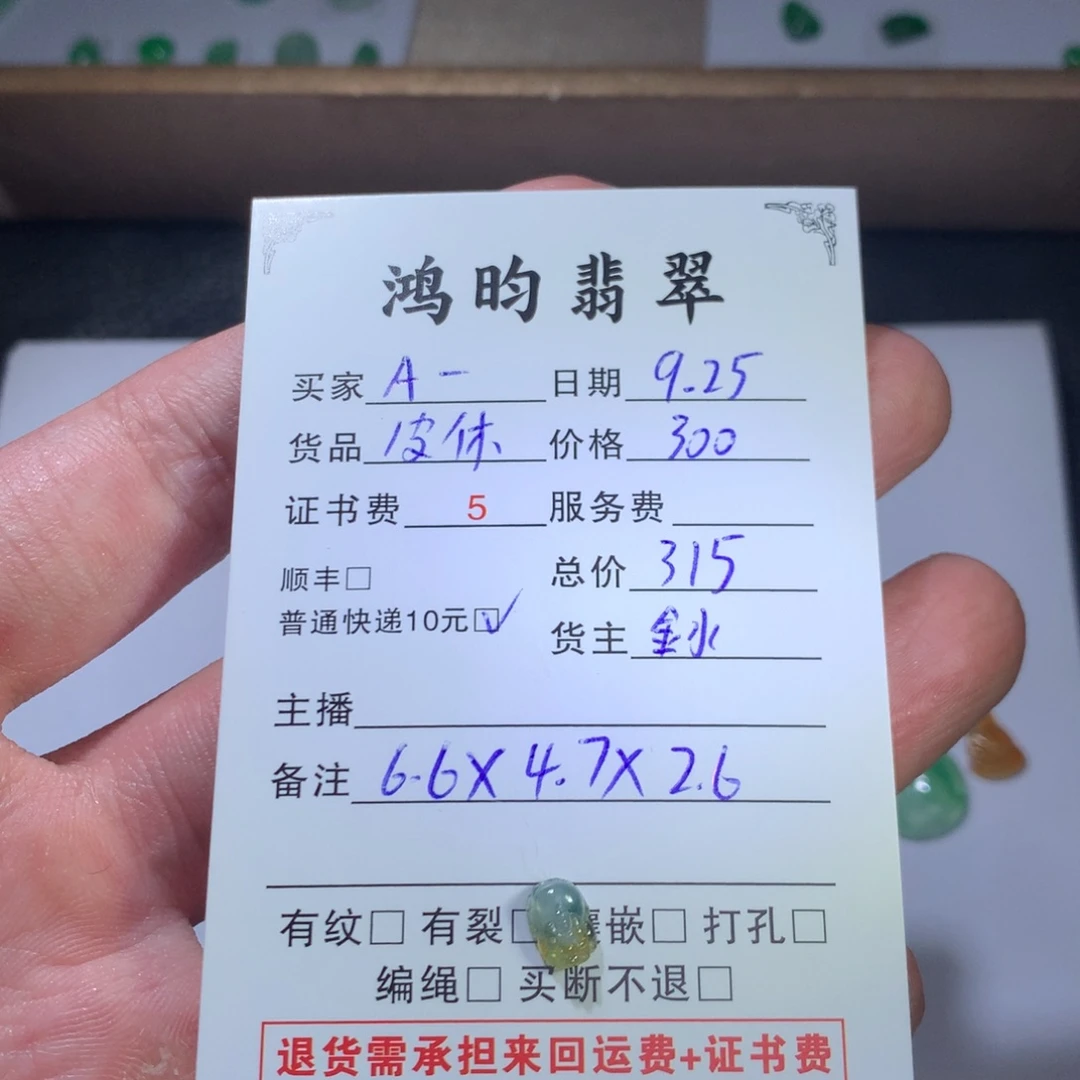 鸿昀翡翠
买家 A一 日期 9.25
货品 皮休 价格 300
证书费 5 服务费
顺丰□ 总价 315
普通快递10元☑ 货主 金水
主播
备注 6.6X4.7X2.6
有纹□ 有裂□ 嵌□ 打孔□
编绳□ 买断不退□
退货需承担来回运费+证书费